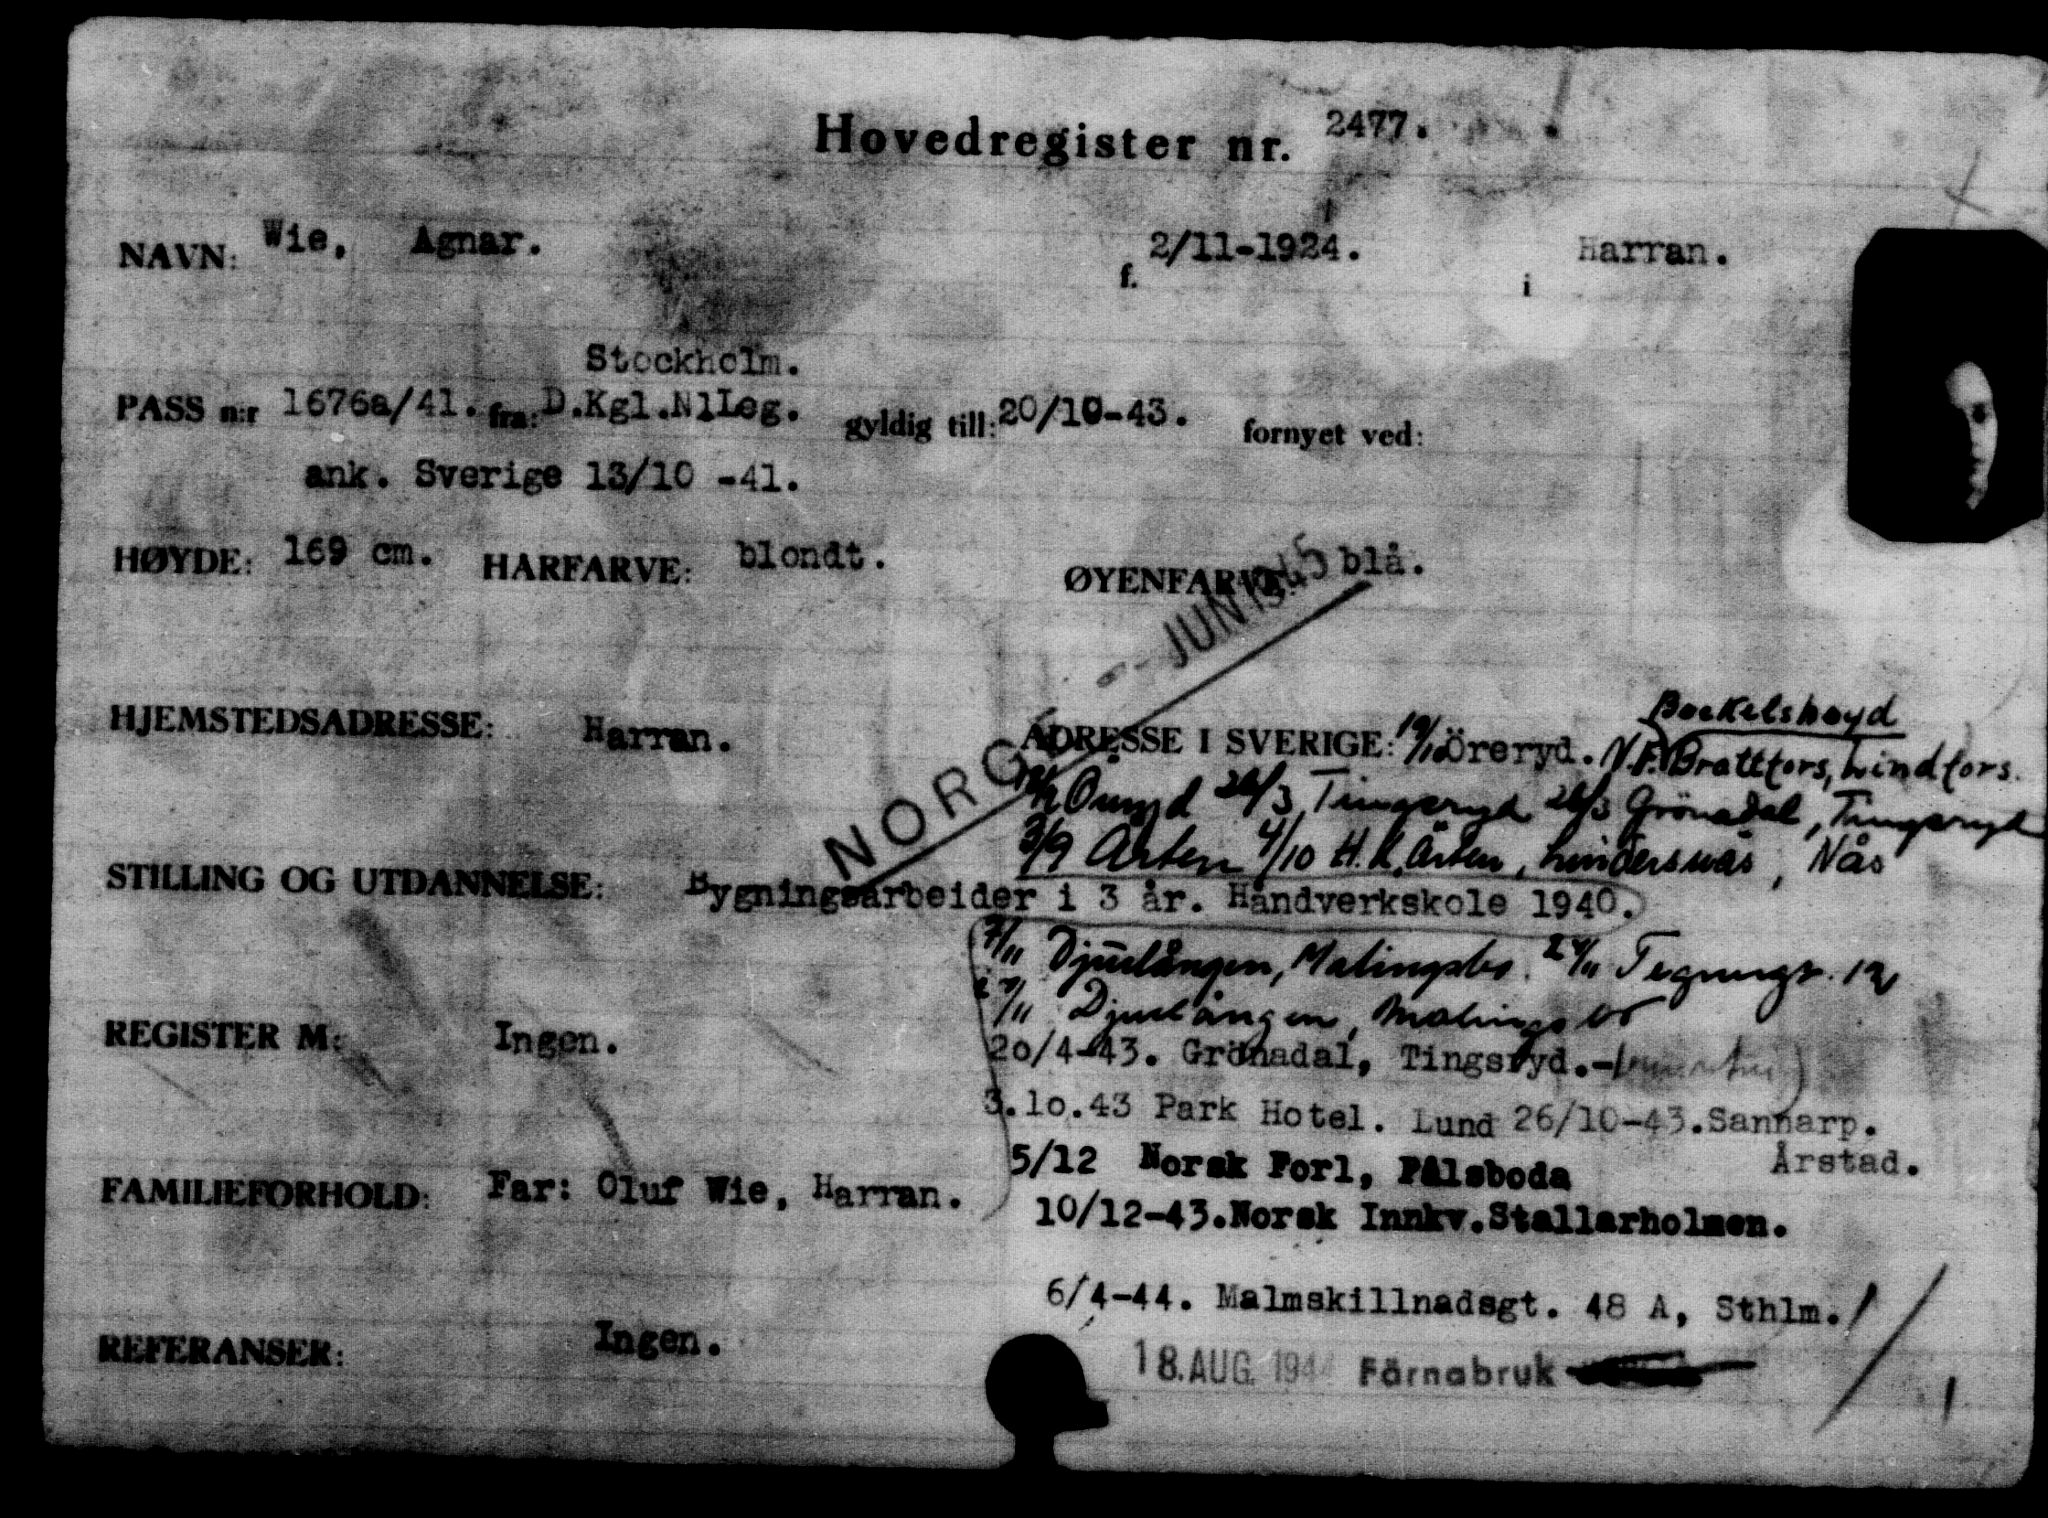 Hovedregister nr. 2477.
NAVN: Wie, Agnar. f. 2/11-1924. i Harran.
Stockholm.
PASS n:r 1676a/41. fra: D.Kgl.NlLeg. gyldig till: 20/10-43. fornyet ved:
ank. Sverige 13/10 -41.
HØYDE: 169 cm. HARFARVE: blondt. ØYENFARVE: blå.
JUN 1945
NORGE
HJEMSTEDSADRESSE: Harran.
Bockelshoyd
ADRESSE I SVERIGE: 19/10 Öreryd. N.F. Brattfors, Lindfors.
Öreryd 26/3 Tingsryd 26/3 Grönadal, Tingsryd
3/9 Arten 4/10 H.K. Årten, Lindersnäs, Nås
STILLING OG UTDANNELSE: Bygningsarbeider i 3 år. Håndverkskole 1940.
7/11 Djurlången, Malingsbo. 24/11 Tegnergt. 12
27/11 Djurlången, Malingsbo
REGISTER M: Ingen.
20/4-43. Grönadal, Tingsryd.-
3.10.43 Park Hotel. Lund 26/10-43. Sannarp.
Årstad.
5/12 Norsk Forl, Pålsboda
FAMILIEFORHOLD: Far: Oluf Wie, Harran.
10/12-43. Norsk Innkv. Stallarholmen.
6/4-44. Malmskillnadsgt. 48 A, Sthlm.
REFERANSER: Ingen.
18. AUG. 1944 Färnabruk